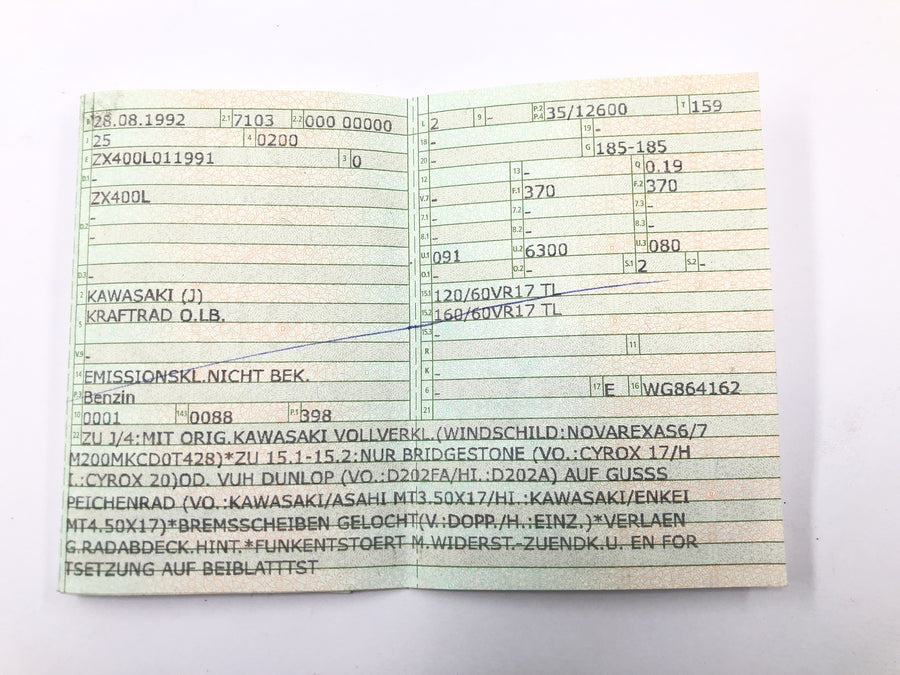 B 28.08.1992 2.1 7103 2.2 000 00000
J 25 4 0200
E ZX400L011991 3 0
D.1 -
ZX400L
D.2 -
-
D.3 -
2 KAWASAKI (J)
5 KRAFTRAD O.LB.
V.9 -
14 EMISSIONSKL.NICHT BEK.
P.3 Benzin
10 0001 14.1 0088 P.1 398
L 2 9 - P.2 P.4 35/12600 T 159
18 - 19 -
20 - G 185-185
12 - 13 - Q 0.19
V.7 - F.1 370 F.2 370
7.1 - 7.2 - 7.3 -
8.1 - 8.2 - 8.3 -
U.1 091 U.2 6300 U.3 080
O.1 - O.2 - S.1 2 S.2 -
15.1 120/60VR17 TL
15.2 160/60VR17 TL
15.3 -
R 11
K -
6 - 17 E 16 WG864162
21
22 ZU J/4:MIT ORIG.KAWASAKI VOLLVERKL.(WINDSCHILD:NOVAREXAS6/7
M200MKCD0T428)*ZU 15.1-15.2:NUR BRIDGESTONE (VO.:CYROX 17/H
I.:CYROX 20)OD. VUH DUNLOP (VO.:D202FA/HI.:D202A) AUF GUSSS
PEICHENRAD (VO.:KAWASAKI/ASAHI MT3.50X17/HI.:KAWASAKI/ENKEI
MT4.50X17)*BREMSSCHEIBEN GELOCHT(V.:DOPP./H.:EINZ.)*VERLAEN
G.RADABDECK.HINT.*FUNKENTSTOERT M.WIDERST.-ZUENDK.U. EN FOR
TSETZUNG AUF BEIBLATTTST